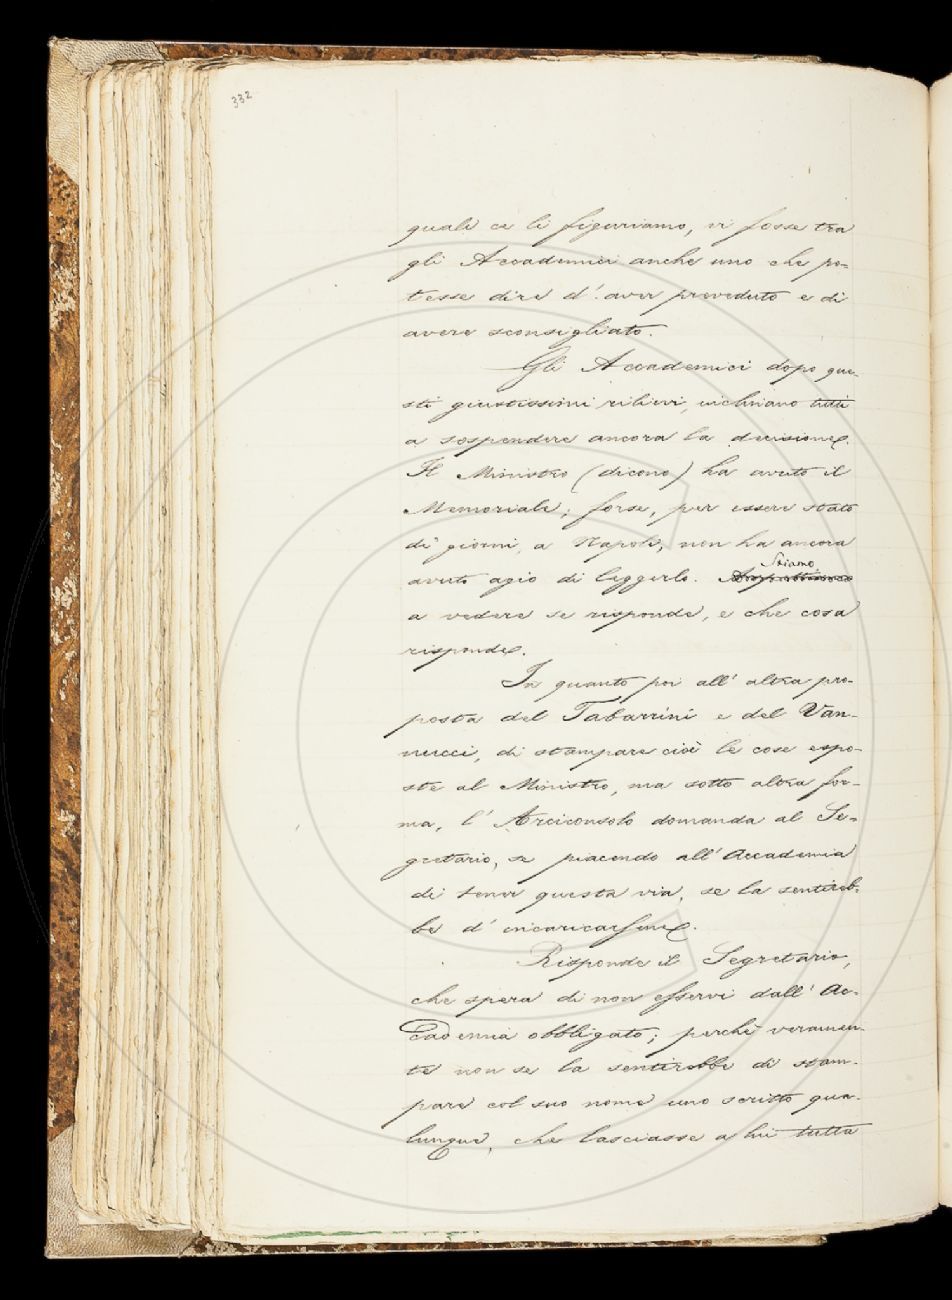 332
quali ce li figuriamo, vi fosse tra
gli Accademici anche uno che po-
tesse dire d' aver preveduto e di
avere sconsigliato.
Gli Accademici dopo que-
sti giustissimi rilievi, inchinano tutti
a sospendere ancora la decisione.
Il Ministro (dicono) ha avuto il
Memoriale; forse, per essere stato
di giorni, a Napoli, non ha ancora
avuto agio di leggerlo. Stiamo
a vedere se risponde, e che cosa
risponde.
In quanto poi all' altra pro-
posta del Tabarrini e del Van-
nucci, di stampare cioè le cose espo-
ste al Ministro, ma sotto altra for-
ma, l' Arciconsolo domanda al Se-
gretario, se piacendo all' Accademia
di tener questa via, se la sentireb-
be d' incaricarsene.
Risponde il Segretario,
che spera di non esservi dall' Ac-
cademia obbligato; perchè veramen-
te non se la sentirebbe di stam-
pare col suo nome uno scritto qua-
lunque, che lasciasse a lui tutta